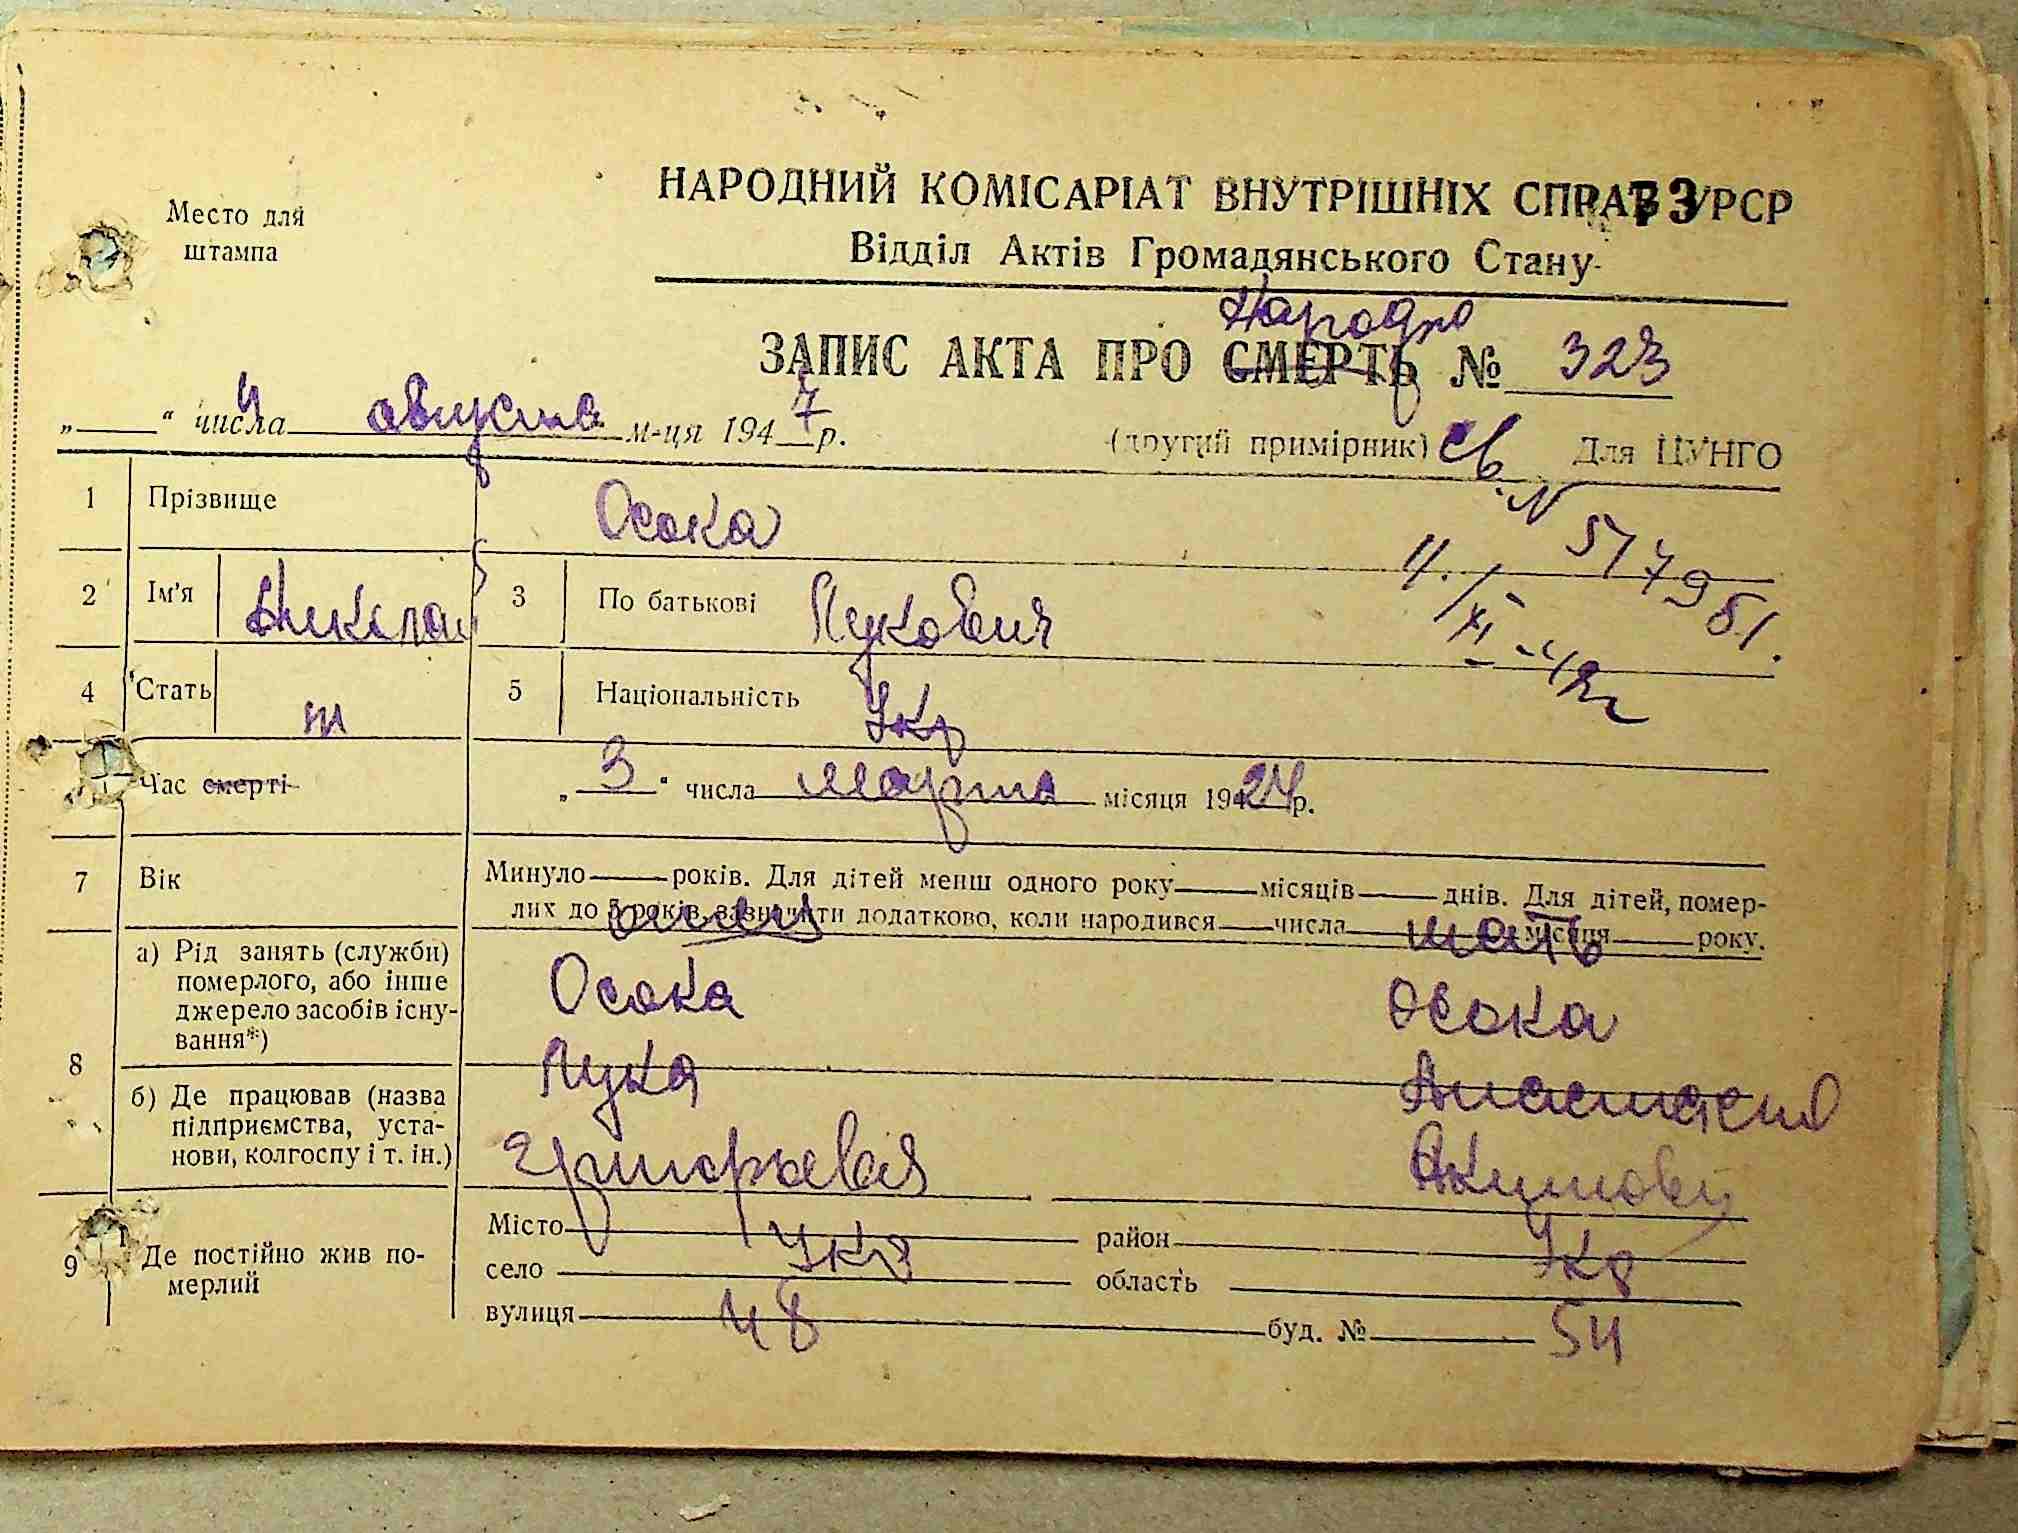 Место для
штампа
НАРОДНИЙ КОМІСАРІАТ ВНУТРІШНІХ СПРАВ УРСР
73
Відділ Актів Громадянського Стану
ЗАПИС АКТА ПРО СМЕРТЬ № 323
„ “ числа 4 августа м-ця 1947 р.
(другий примірник) Св. Для ЦУНГО
1 Прізвище Осока
2 Ім'я Николай 3 По батькові Лукович
4 Стать м 5 Національність Укр
Час смерті „3“ числа марта місяця 1924 р.
7 Вік Минуло років. Для дітей менш одного року місяців днів. Для дітей, помер-
лих до 5 років, зазначити додатково, коли народився числа місяця року.
отец мать
8 а) Рід занять (служби)
померлого, або інше
джерело засобів існу-
вання*)
Осока Осока
Лука
б) Де працював (назва
підприємства, уста-
нови, колгоспу і т. ін.)
9 Де постійно жив по-
мерлий
Місто район
Укр Укр
село область
вулиця 48 буд. № 54